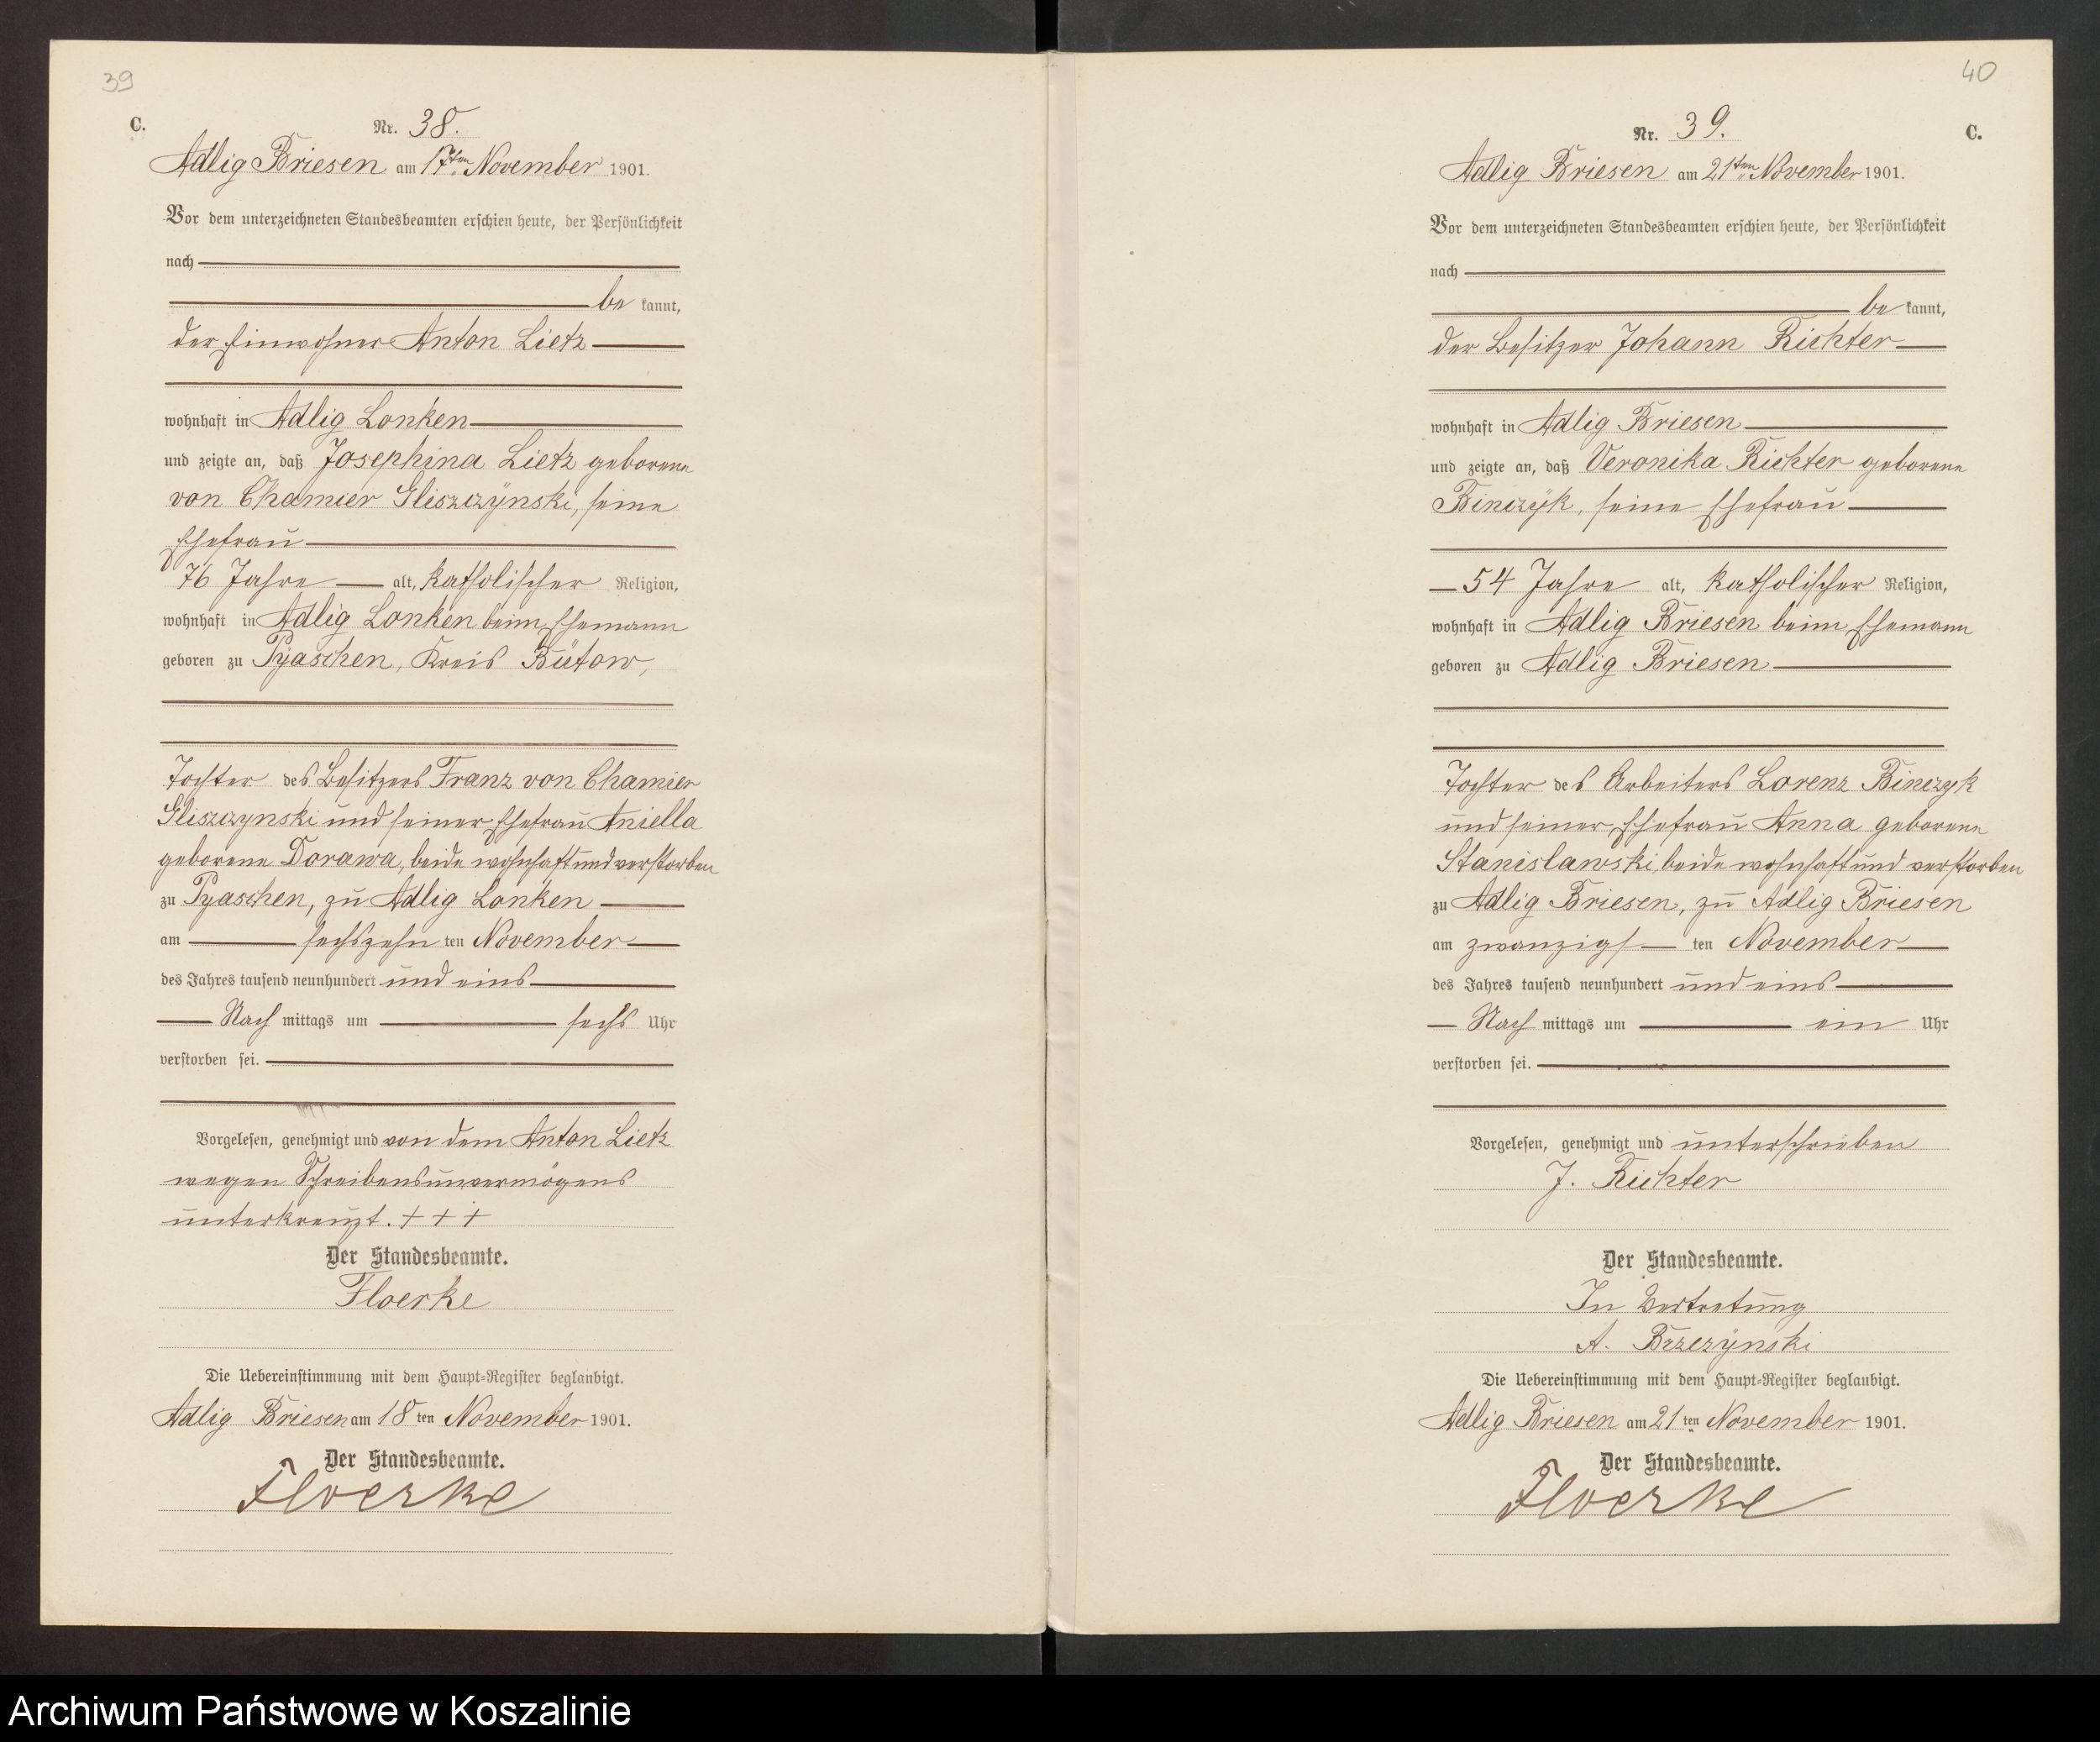 39
C.
Nr. 38.
Adlig Briesen am 17ten November 1901.
Vor dem unterzeichneten Standesbeamten erschien heute, der Persönlichkeit
nach
be kannt,
der Einwohner Anton Lietz
wohnhaft in Adlig Lonken
und zeigte an, daß Josephina Lietz geborene
von Chamier Gliszczÿnski, seine
Ehefrau
76 Jahre alt, katholischer Religion,
wohnhaft in Adlig Lonken beim Ehemann
geboren zu Pÿaschen, Kreis Bütow,
Tochter des Besitzers Franz von Chamier
Gliszczynski und seiner Ehefrau Aniella
geborene Dorawa, beide wohnhaft und verstorben
zu Pyaschen, zu Adlig Lonken
am sechszehn ten November
des Jahres tausend neunhundert und eins
Nach mittags um sechs Uhr
verstorben sei.
Vorgelesen, genehmigt und von dem Anton Lietz
wegen Schreibensunvermögens
unterkreuzt. + + +
Der Standesbeamte.
Floerke
Die Uebereinstimmung mit dem Haupt-Register beglaubigt.
Adlig Briesen am 18 ten November 1901.
Der Standesbeamte.
Floerke
40
Nr. 39.
C.
Adlig Briesen am 21ten November 1901.
Vor dem unterzeichneten Standesbeamten erschien heute, der Persönlichkeit
nach
be kannt,
der Besitzer Johann Richter
wohnhaft in Adlig Briesen
und zeigte an, daß Veronika Richter geborene
Binczÿk, seine Ehefrau
54 Jahre alt, katholischer Religion,
wohnhaft in Adlig Briesen beim Ehemann
geboren zu Adlig Briesen
Tochter des Arbeiters Lorenz Binczyk
und seiner Ehefrau Anna geborene
Stanislawski, beide wohnhaft und verstorben
zu Adlig Briesen, zu Adlig Briesen
am zwanzigs ten November
des Jahres tausend neunhundert und eins
Nach mittags um ein Uhr
verstorben sei.
Vorgelesen, genehmigt und unterschrieben
J. Richter
Der Standesbeamte.
In Vertretung
A. Brzezÿnski
Die Uebereinstimmung mit dem Haupt-Register beglaubigt.
Adlig Briesen am 21 ten November 1901.
Der Standesbeamte.
Floerke
Archiwum Państwowe w Koszalinie